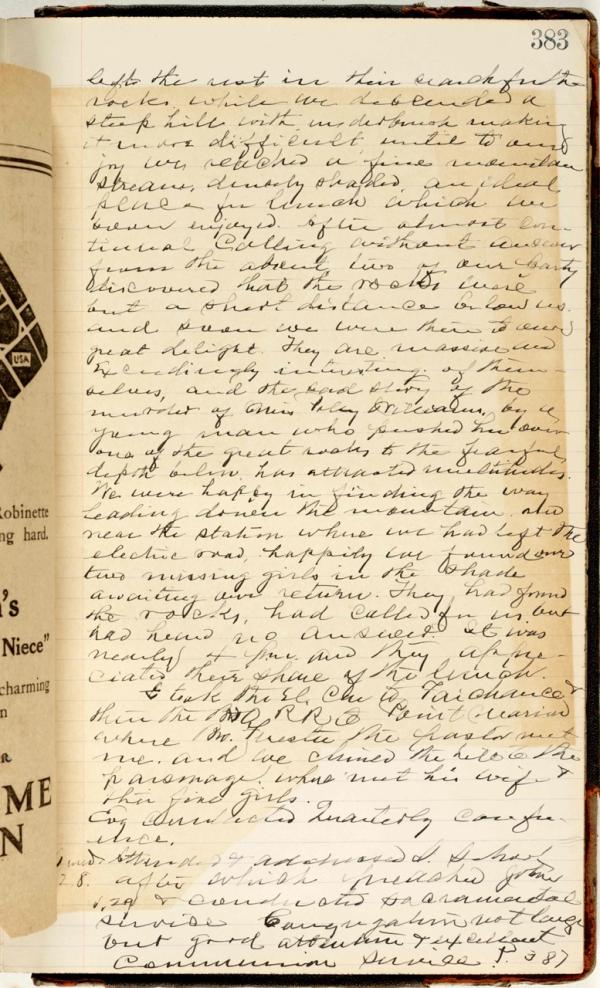 383
left the rest in their search for the
rocks, while we descended a
steep hill with underbrush making
it more difficult, until to our
joy we reached a fine mountain
stream, densely shaded, an ideal
place for lunch which we
soon enjoyed. After almost con-
tinual calling without answer
from the absent two of our party
discovered that the rocks were
but a short distance below us.
and soon we were there to our
great delight. They are massive and
exceedingly interesting of them-
selves, and the sad story of the
murder of Miss Williams, by a
young man who pushed her over
one of the great rocks to the fearful
depth below, has attracted multitudes.
We were happy in finding the way
leading down the mountain and
near the station where we had left the
electric road, happily we found our
two missing girls in the shade
awaiting our return. They had found
the rocks, had called for us, but
had heard no answer. It was
nearly 4 p.m. and they appre-
ciated their share of the lunch.
I took the El. Car to Fairchance &
then the B&O RR to Point Marion
where Mr. the Pastor met
me. and we climed the hill to the
parsonage, where met his wife &
their fine girls.
Eve conducted Quarterly confer-
ence.
Attended & addressed S. School
28. after which preached John
1.29 & conducted sacramental
service Congregation not large
but good attention & excellent
Communion service P. 387
USA
Robinette
ng hard.
's
Niece"
charming
n
ME
N